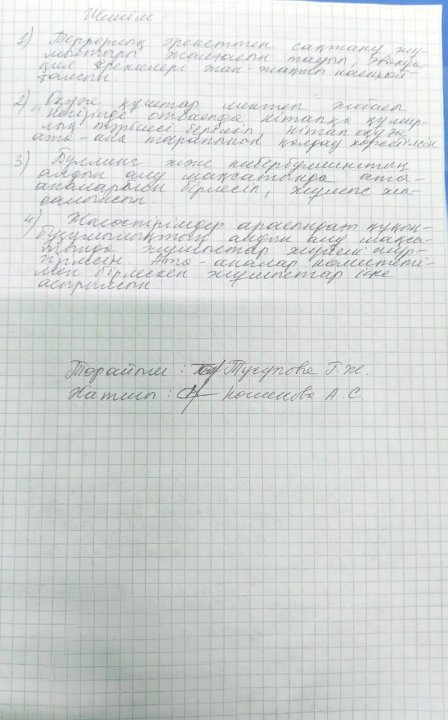 Шешім:
1) Терорлық әрекеттен сақтану жұ-
мыстары жалғасын тауып, эвакуа-
ция ережелері жан-жақты насихат-
талсын.
2) Оқуға құштар мектеп жобасы
негізінде отбасында кітапқа құмар-
лық тәрбиесі беріліп, кітап оқуға
ата-ана тарапынан қолдау көрсетілсін
3) Буллинг және кибербуллингтің
алдын алу мақсатында ата-
аналармен бірлесіп, жұмыс жа-
салынсын.
4) Жасөспірімдер арасындағы құқық-
бұзушылықтың алдын алу мақса-
тында жұмыстар жүйелі жүр-
гізілсін. Ата-аналар комитеті-
мен бірлескен жұмыстар іске
асырылсын.
Төрайымы: Тусупова Г.Ж.
Хатшы: А.С.